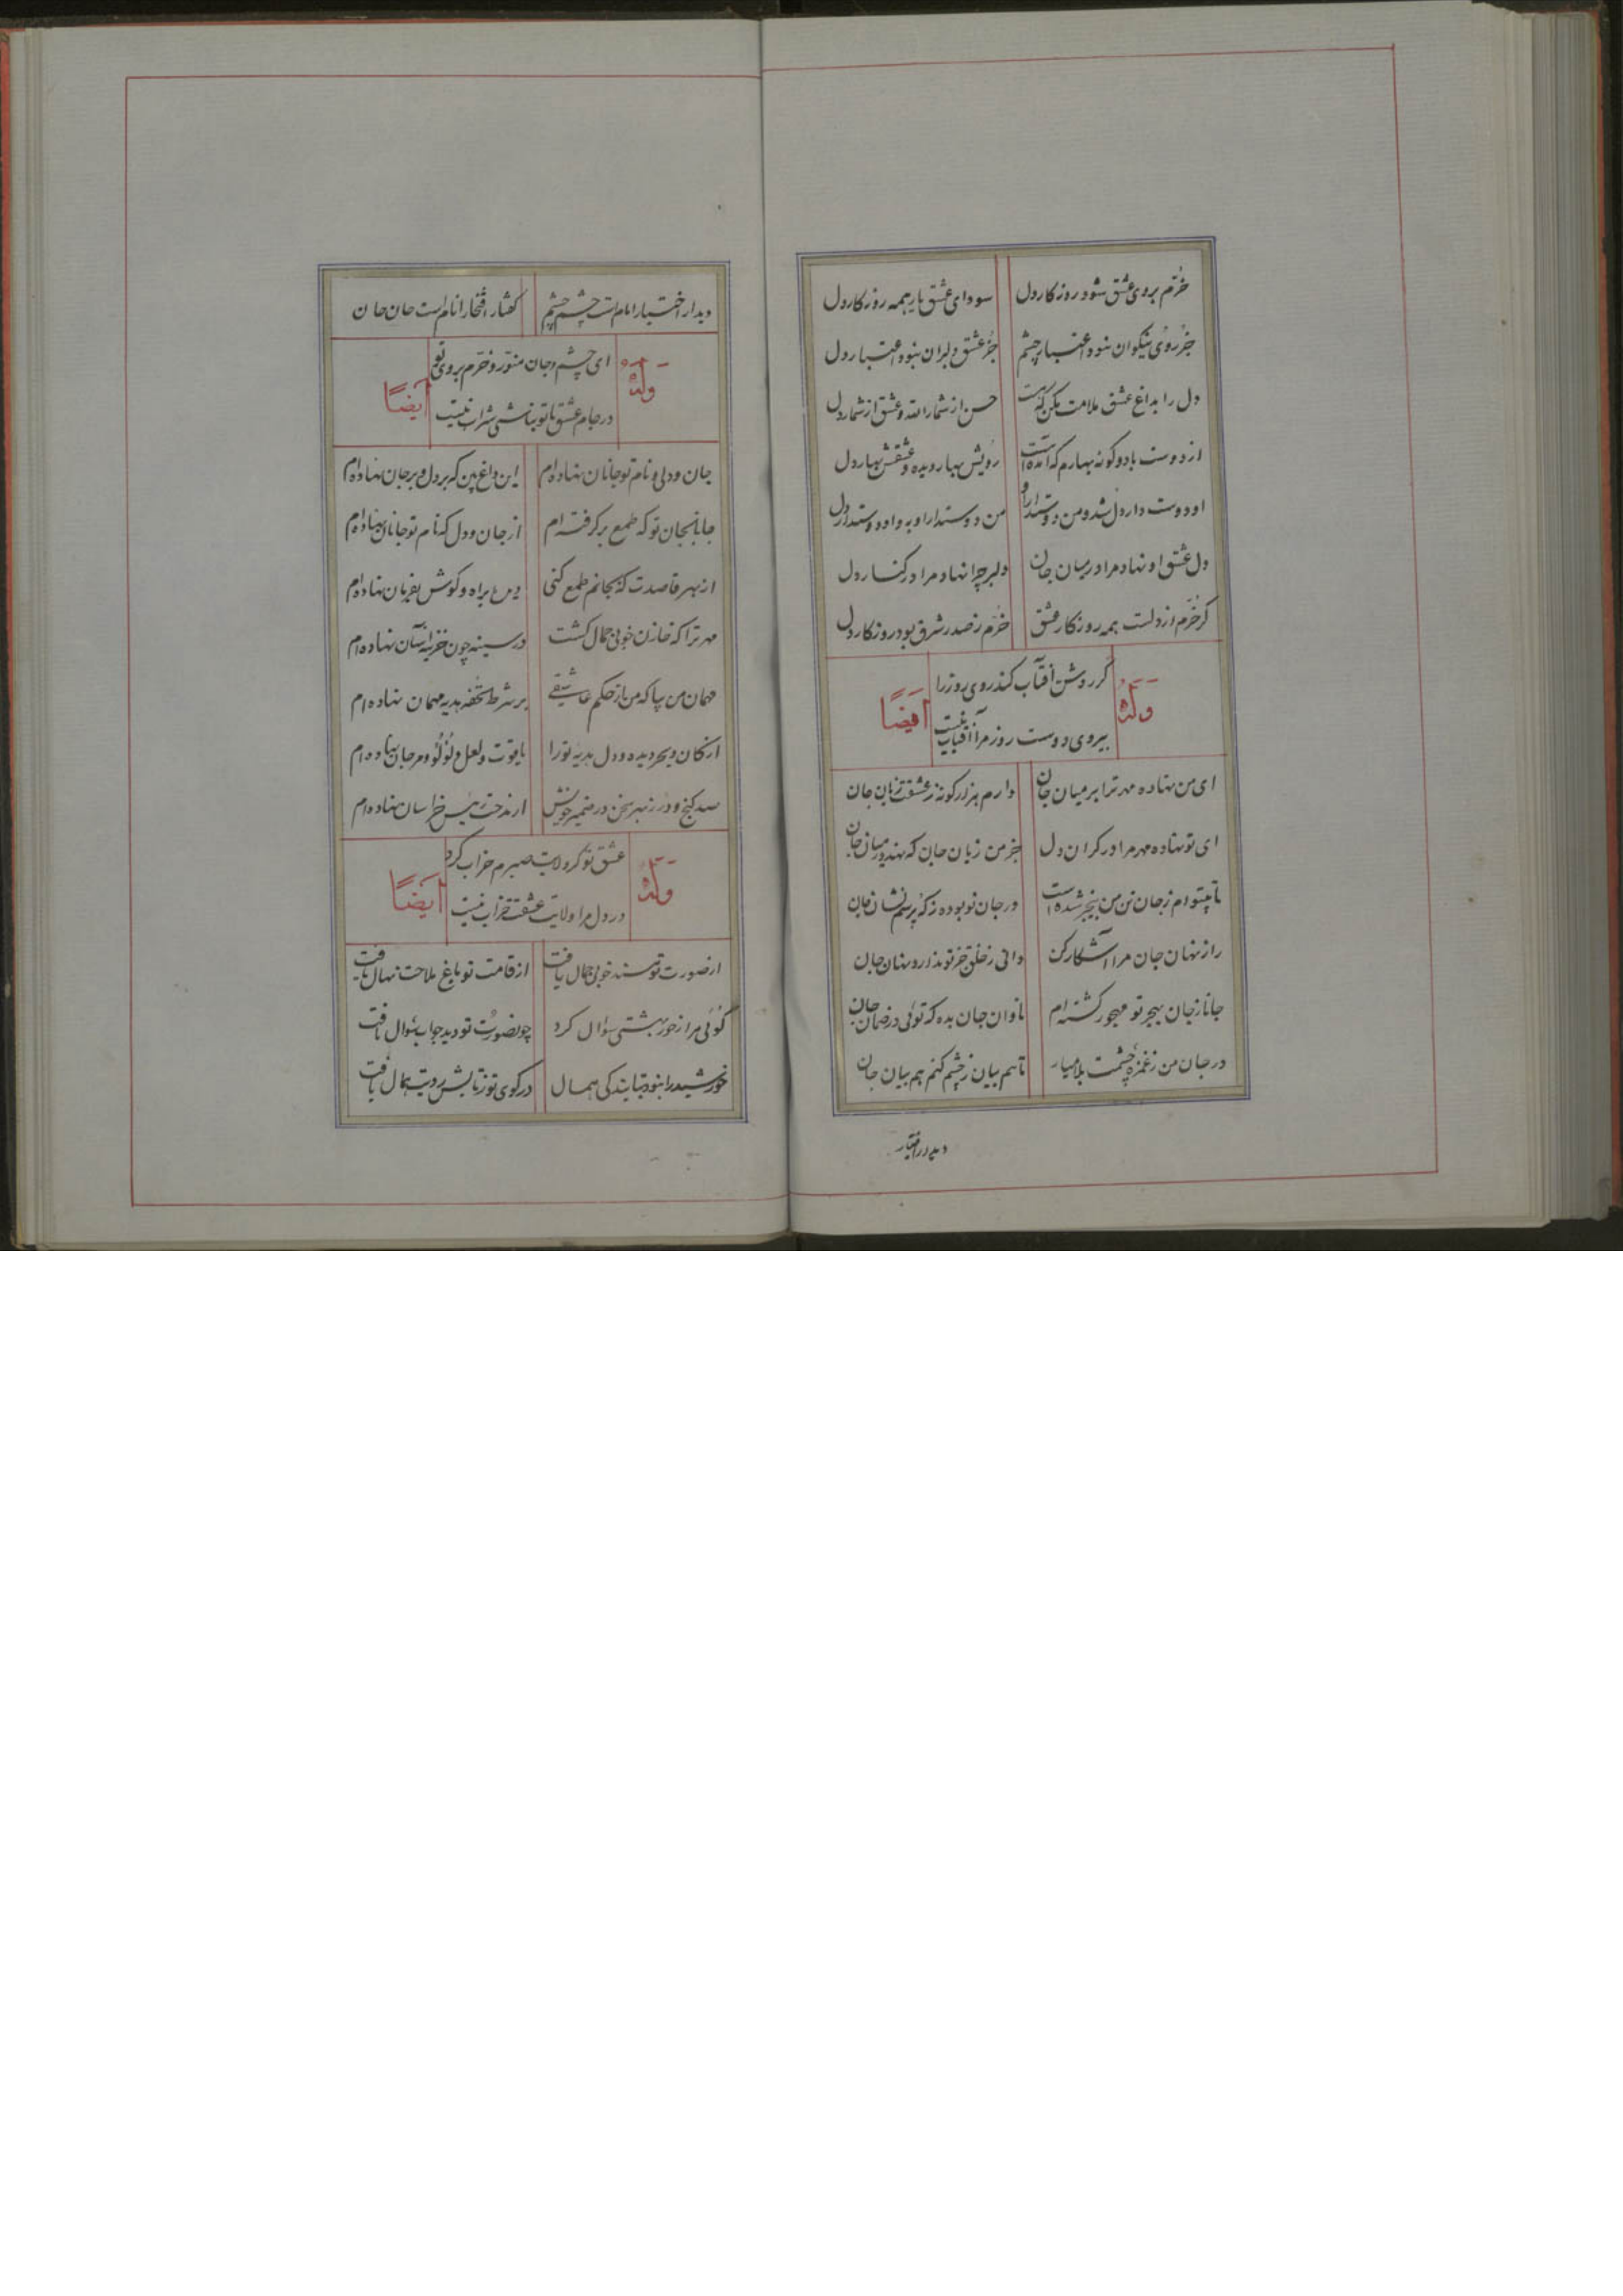 خرم بروی عشق شود روزکار دل سودای عشق یار همه روزکار دل
جز روی نیکوان نبود اعتبار چشم جز عشق دلبران نبود اعتبار دل
دل را بداغ عشق ملامت مکن که حسن از شمار الله و عشق از شمار دل
از دوست بادو کونه بهارم که آمده است رویش بهار دیده و عشقش بهار دل
او دوست دار دل شد و من دوستدار او من دوستدار او به و او دوستدار دل
دل عشق او نهاد مرا در میان جان دلبر چرا نهاد مرا در کنار دل
کر خرم از دلست همه روزکار عشق خرم ز صدر شرق بود روزکار دل
وله کر روشن آفتاب کند روی روز را
بیروی دوست روز مرا آفتاب نیست ایضاً
ای من نهاده مهر ترا بر میان جان دارم هزار کونه ز عشقت زیان جان
ای تو نهاده مهر مرا در کران دل جز من زبان جان که نهد در میان جان
تا بیتو ام ز جان تن من بیخبر شده است در جان تو بوده ز که پرسم نشان جان
راز نهان جان مرا آشکار کن دانی ز خلق جز تو ندارد نهان جان
جانا ز جان بهجر تو مهجور کشته ام تاوان جان بده که توئی در ضمان جان
در جان من ز غمزه چشمت بلا میار تا هم بیان ز چشم کنم هم بیان جان
دیدار اختیار
دیدار اختیار امام است چشم چشم کفتار افتخار انام است جان جان
وله ای چشم و جان منور و خرم بروی تو
در جام عشق با تو بنا شی شراب نیست ایضاً
جان و دلی و نام تو جانان نهاده ام این داغ بین که بر دل و بر جان نهاده ام
جانا بجان تو که طمع بر کرفته ام از جان و دل که نام تو جانان نهاده ام
از بهر قاصدت که بجانم طمع کنی دیده براه و کوش بفرمان نهاده ام
مهر ترا که خازن خوبی جمال کشت در سینه چون خزینه آسان نهاده ام
مهمان من بیا که من از حکم عاشقی بر شرط تحفه هدیه مهمان نهاده ام
از کان و بحر دیده و دل هدیه تو را یاقوت و لعل و لؤلؤ و مرجان نهاده ام
صد کنج و در ز بهر سخن در ضمیر خویش از مدحت رئیس خراسان نهاده ام
وله عشق تو کر ولایت صبرم خراب کرد
در دل مرا ولایت عشقت خراب نیست ایضاً
از صورت تو سند خوبی جمال یافت از قامت تو باغ ملاحت نهال یافت
کوئی مرا ز حور بهشتی سؤال کرد چون صورت تو دید جواب سؤال یافت
خورشید را نبود بتابندکی همال در کوی تو ز تابش رویت همال یافت